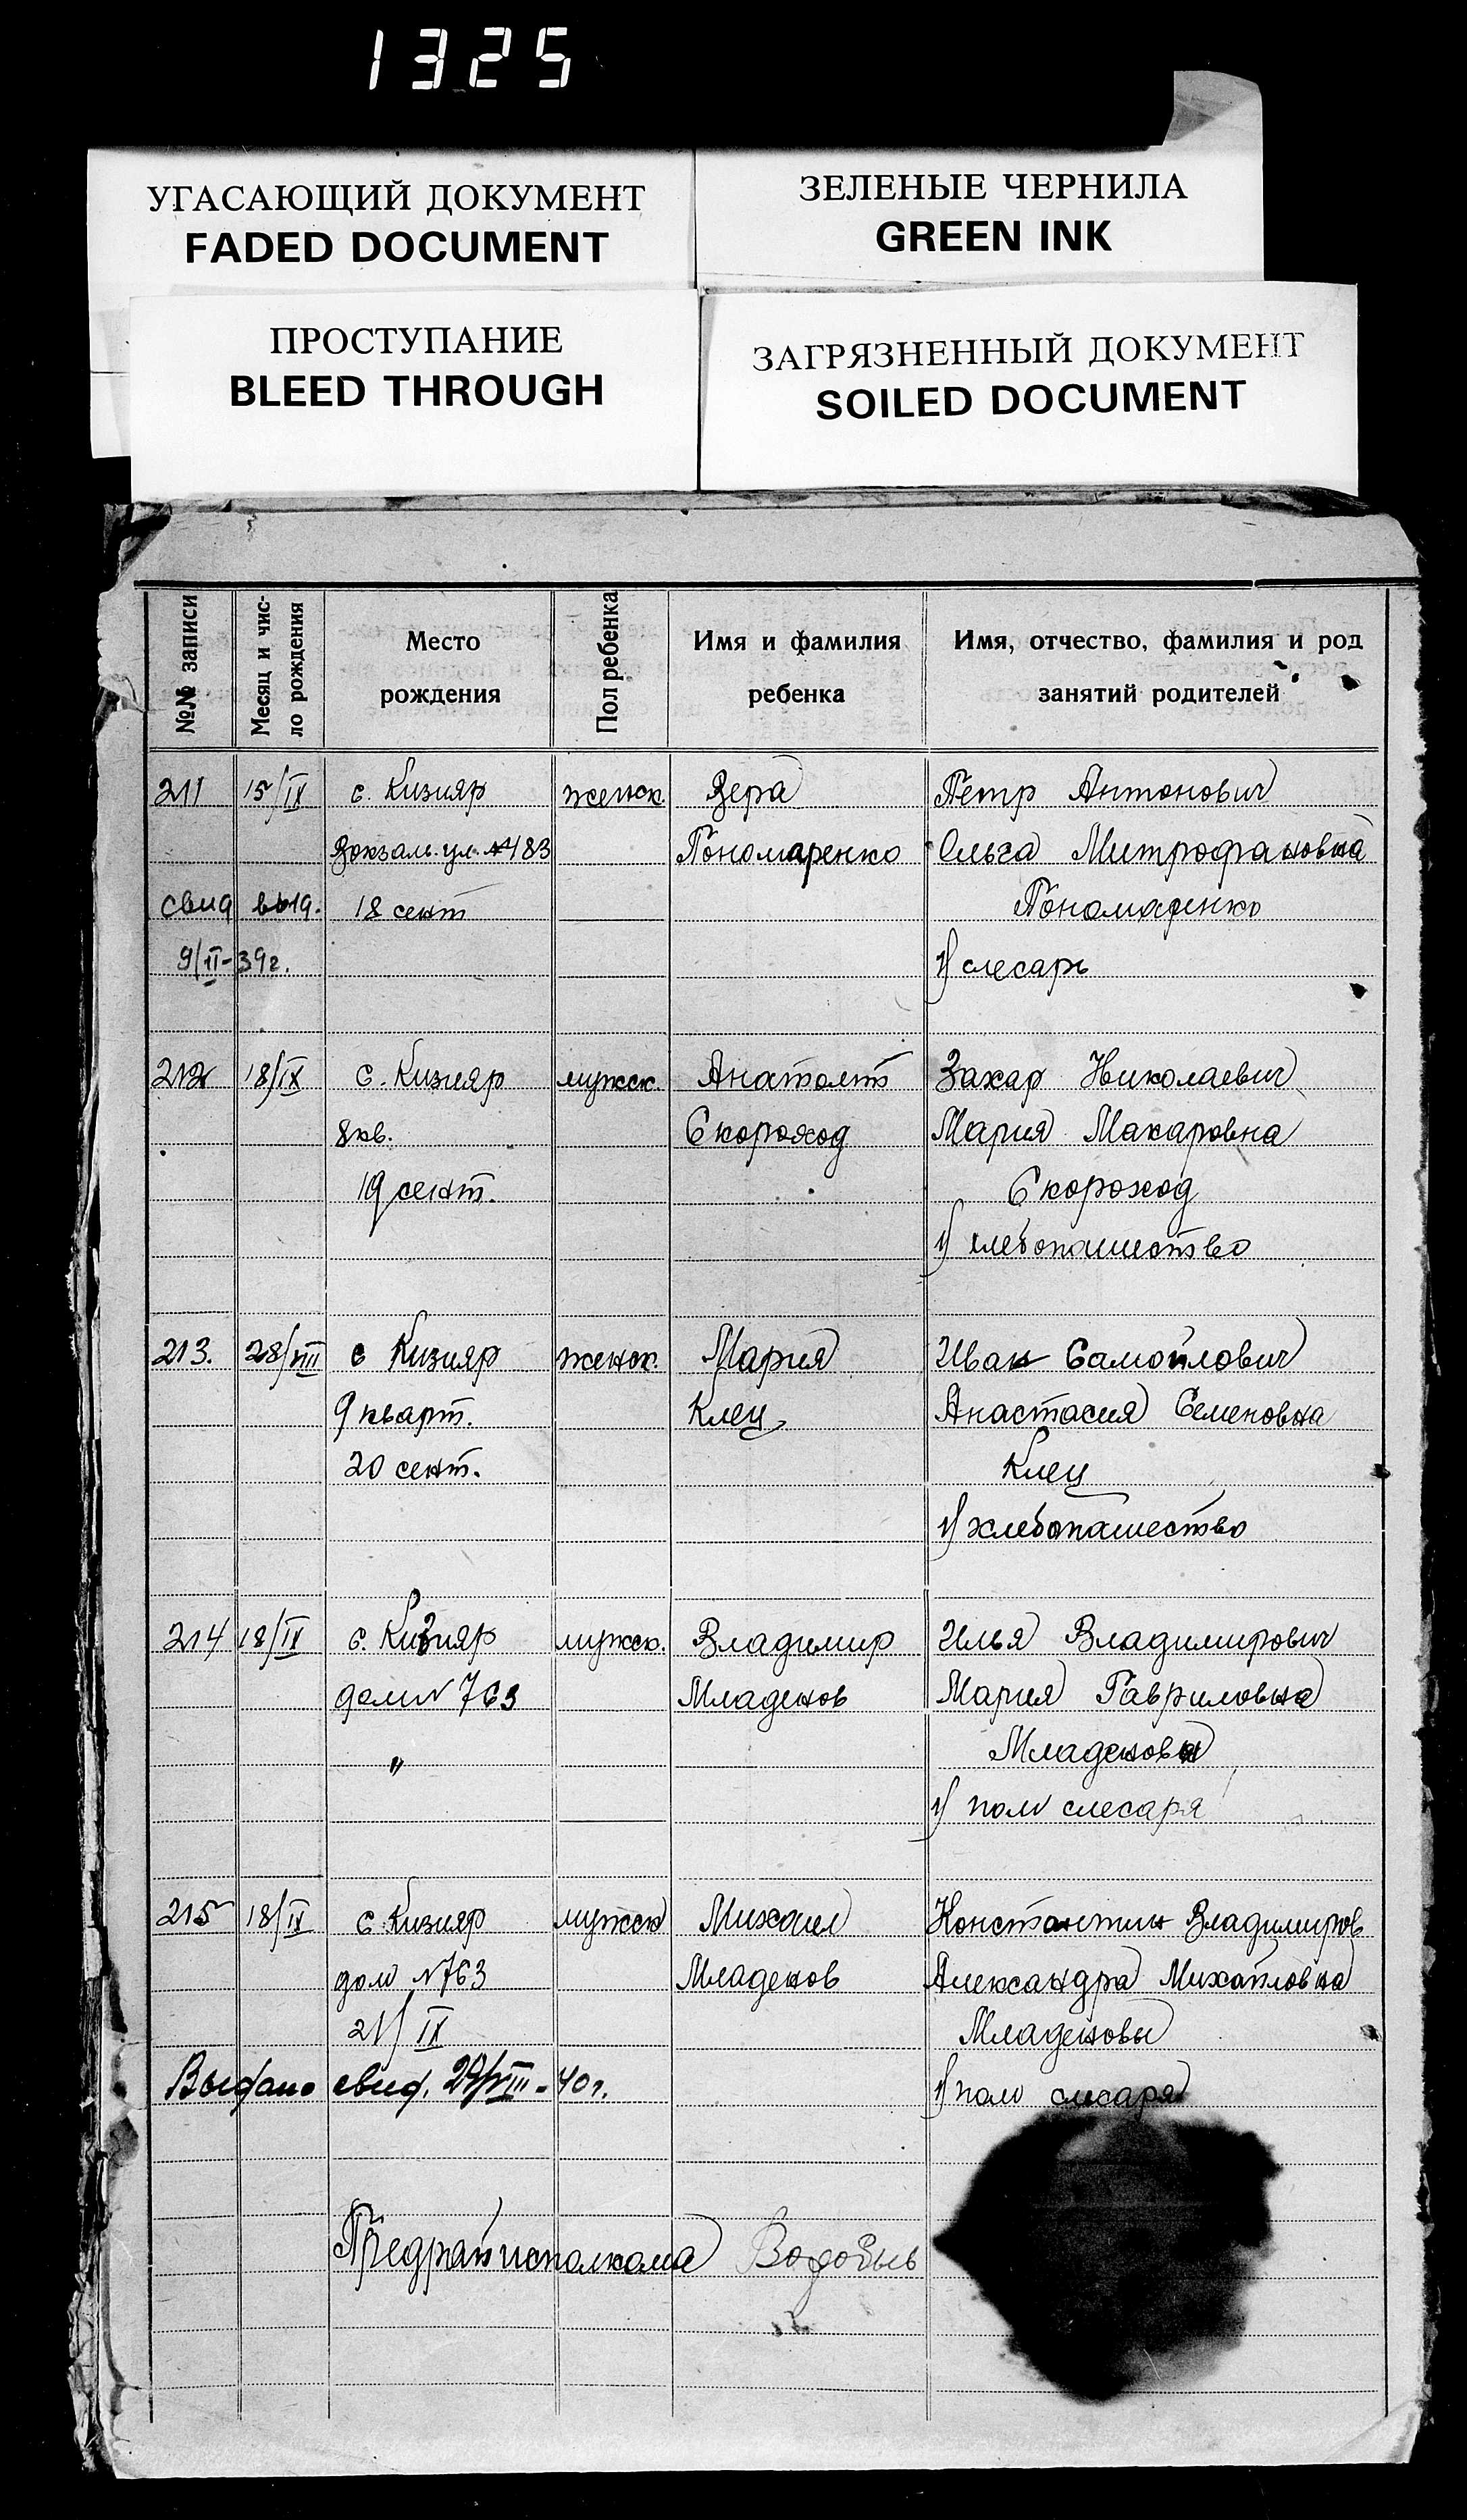 1325
УГАСАЮЩИЙ ДОКУМЕНТ
FADED DOCUMENT
ЗЕЛЕНЫЕ ЧЕРНИЛА
GREEN INK
ПРОСТУПАНИЕ
BLEED THROUGH
ЗАГРЯЗНЕННЫЙ ДОКУМЕНТ
SOILED DOCUMENT
№№ записи
Месяц и чис-
ло рождения
Место
рождения
Пол ребенка
Имя и фамилия
ребенка
Имя, отчество, фамилия и род
занятий родителей
211 15/IX с. Кизияр женск. Вера Петр Антонович
Вокзаль. ул. №483 Пономаренко Ольга Митрофановна
свид выд. 18 сент Пономаренко
9/II-39г. 1) слесарь
212 18/IX с. Кизияр мужск. Анатолий Захар Николаевич
8кв. Скороход Мария Макаровна
19 сент. Скороход
1) хлебопашество
213. 28/VIII с Кизияр женск. Мария Иван Самойлович
9 кварт. Клец Анастасия Семеновна
20 сент. Клец
1) хлебопашество
214 18/IX с. Кизияр мужск. Владимир Илья Владимирович
дом N 763 Младенов Мария Гавриловна
" Младеновы
1) пом слесаря
215 18/IX с. Кизияр мужск Михаил Константин Владимиров
дом N763 Младенов Александра Михайловна
21/IX Младеновы
Выдано свид. 29/VIII-40г. 1) пом слесаря
Предрайисполкома